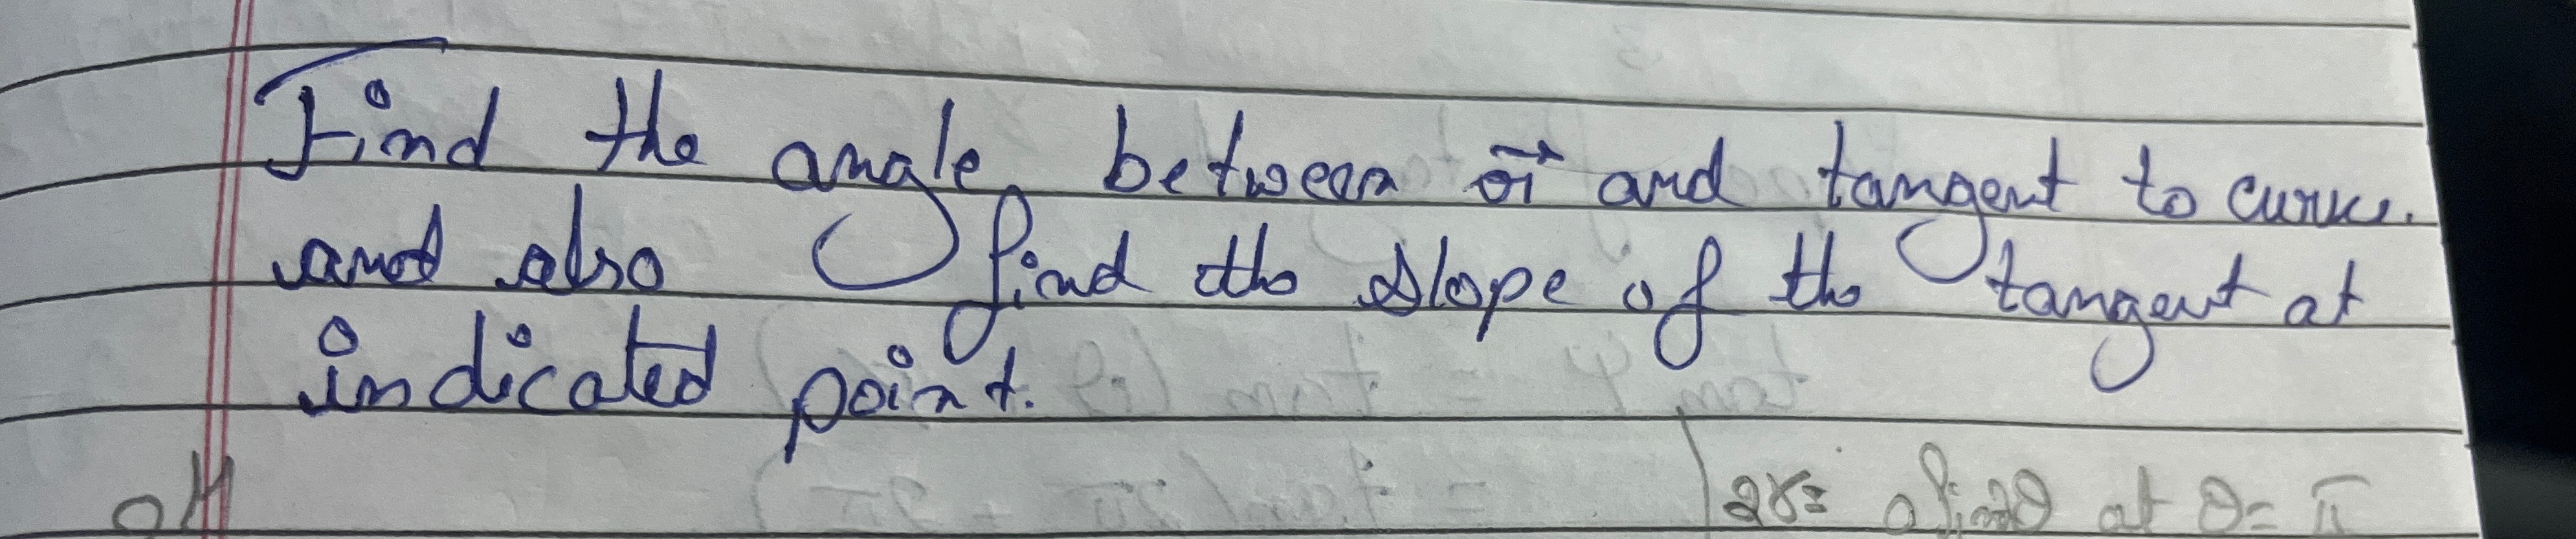 Find the angle between or and tangent to curve.
and also find the slope of the tangent at
indicated point.
at θ= π